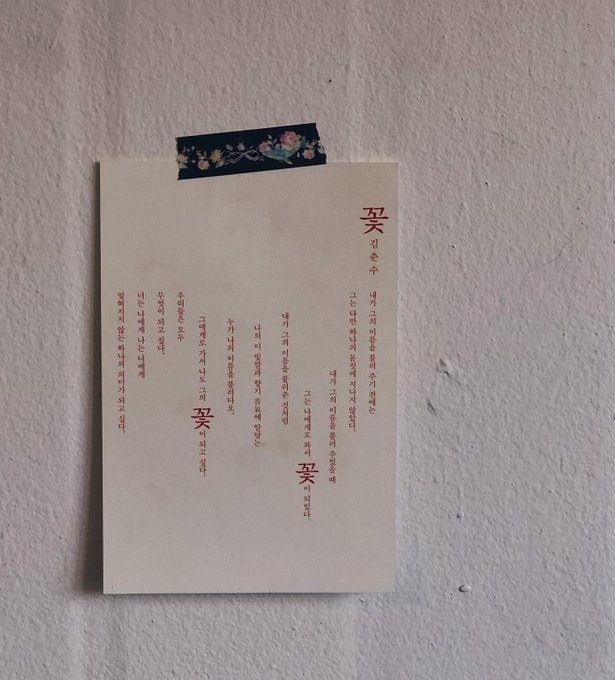 꽃
김 춘 수
내가 그의 이름을 불러 주기 전에는
그는 다만 하나의 몸짓에 지나지 않았다.
내가 그의 이름을 불러 주었을 때
그는 나에게로 와서 꽃이 되었다.
내가 그의 이름을 불러준 것처럼
나의 이 빛깔과 향기 香氣에 알맞는
누가 나의 이름을 불러다오.
그에게로 가서 나도 그의 꽃이 되고 싶다.
우리들은 모두
무엇이 되고 싶다.
너는 나에게 나는 너에게
잊혀지지 않는 하나의 의미가 되고 싶다.